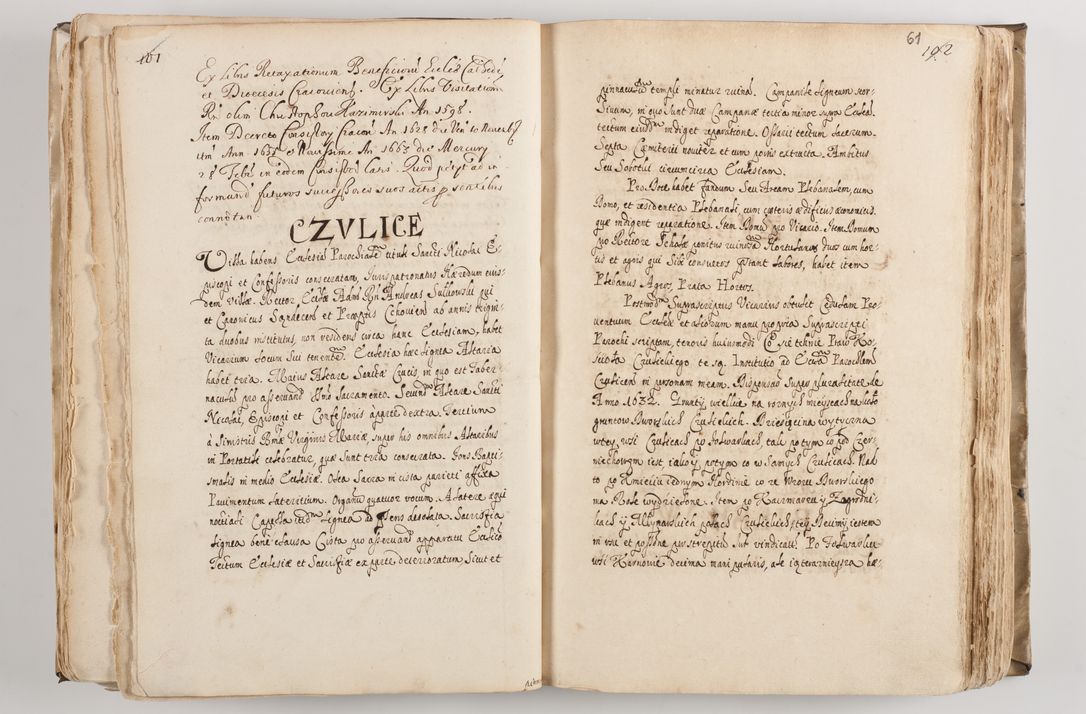 101
Ex Libris Retaxationum Beneficiorū Eccles Cathedr
et Dioecesis Cracovien. Ex Libris Visitationum
Rn olim Christophori Kazimirski An 1598
Item Decreto Consistory Cracov An 1628 die Ven 10 Novemb
item Ann 1635 & Novissime An 1663 die Mercury
28 Febr in eodem Consistorio
formand futuros successores suos actis p sentibus
connotan
CZVLICE
Villa habens Ecclesiā Parochialē tituli Sancti Nicolai E-
piscopi et Confessoris consecratam, Jurispatronatus Hæredum eius-
dem Villæ. Rector Ecclæ Adm Rn Andreas Sulkowski qui
et Canonicus Sandecen et Præptus ab annis trigin-
ta duobus institutus non residens circa hanc Ecclesiam, habet
Vicarium locum sui tenentē. Ecclesia hæc lignea Altaria
habet tria. Maius Altare Sanctæ Crucis, in quo est Taber-
naculū pro asservand Sacramento. Secundū Altare Sancti
Nicolai, Episcopi et Confessoris à parte dextra. Tertium
à sinistris Bmæ Virginis Mariæ, super his omnibus Altaribus
in Portatili celebratur, quæ sunt tria consecrata. Fons Bapti-
smalis in medio Ecclesiæ. Olea Sacra in cista parieti affixa
Pavimentum lateritium. Organū quatuor vocum. A latere aqui
nociali Capella lignea desolata. Sacristia
lignea bene clausa Cista pro asservand apparatu Ecclīco
Tectum Ecclesiæ et Sacristiæ ex parte deterioratum Sicut et
61
102
pinnaculū templi minatur ruinā. Campanile ligneum
in quo Sunt duæ Campanæ tertia minor supra Ecclesiæ
tectum eiusdē indiget reparatione. Ossarii tectum lacerum.
Septa Cæmiterii noviter et cum portis extructa. Ambitus
Seu Sobotki circumcirca Ecclesiam.
Pro Dote habet fundum Seu Aream Plebanalem, cum
Domo, et residentia Plebanali, cum cæteris ædificiis œconomicis.
quæ indigent reparatione. Item Domū pro Vicario. Item Domum
pro Rectore Scholæ penitus Hortulanos duos cum hor-
tis et agris qui Sibi consuetos præstant labores, habet item
Plebanus Agros, Prata Hortos.
Postmodū Suprascriptus Vicarius obtulit Cedulam Pro-
ventuum Ecclesiæ et aliorum manu propria Suprascripti
Parochi scriptam, tenoris huiusmodi Prawo Ko-
sciola Czulickiego te są. Institutio ad Ecclam Parochlem
Czulicen in personam meam. Dispensao Super pluralitate de
Anno 1632. Grunty, wielkie na roznych mieyscach
gruntow Dworskich Czulickich. Dziesięcina wytyczna
wtey wsi Czulicach po folwarkach tak po tym co pod Czer-
niechowym iest, iako y potym co w Samych Czulicach. Nad
to po Kmieciu iednym Hordinie co ze Dworu Dworskiego
na Role wydzielone. Item po Karczmarzu y Zagrodni-
kach y Mlynarskich polach Czulickich, tey Decimy iestem
in usu et possne per strepitū Jut vindicati Po Folwarku
wsi Karnowie decima mani pularis, ale ią teraznieysza hæ-